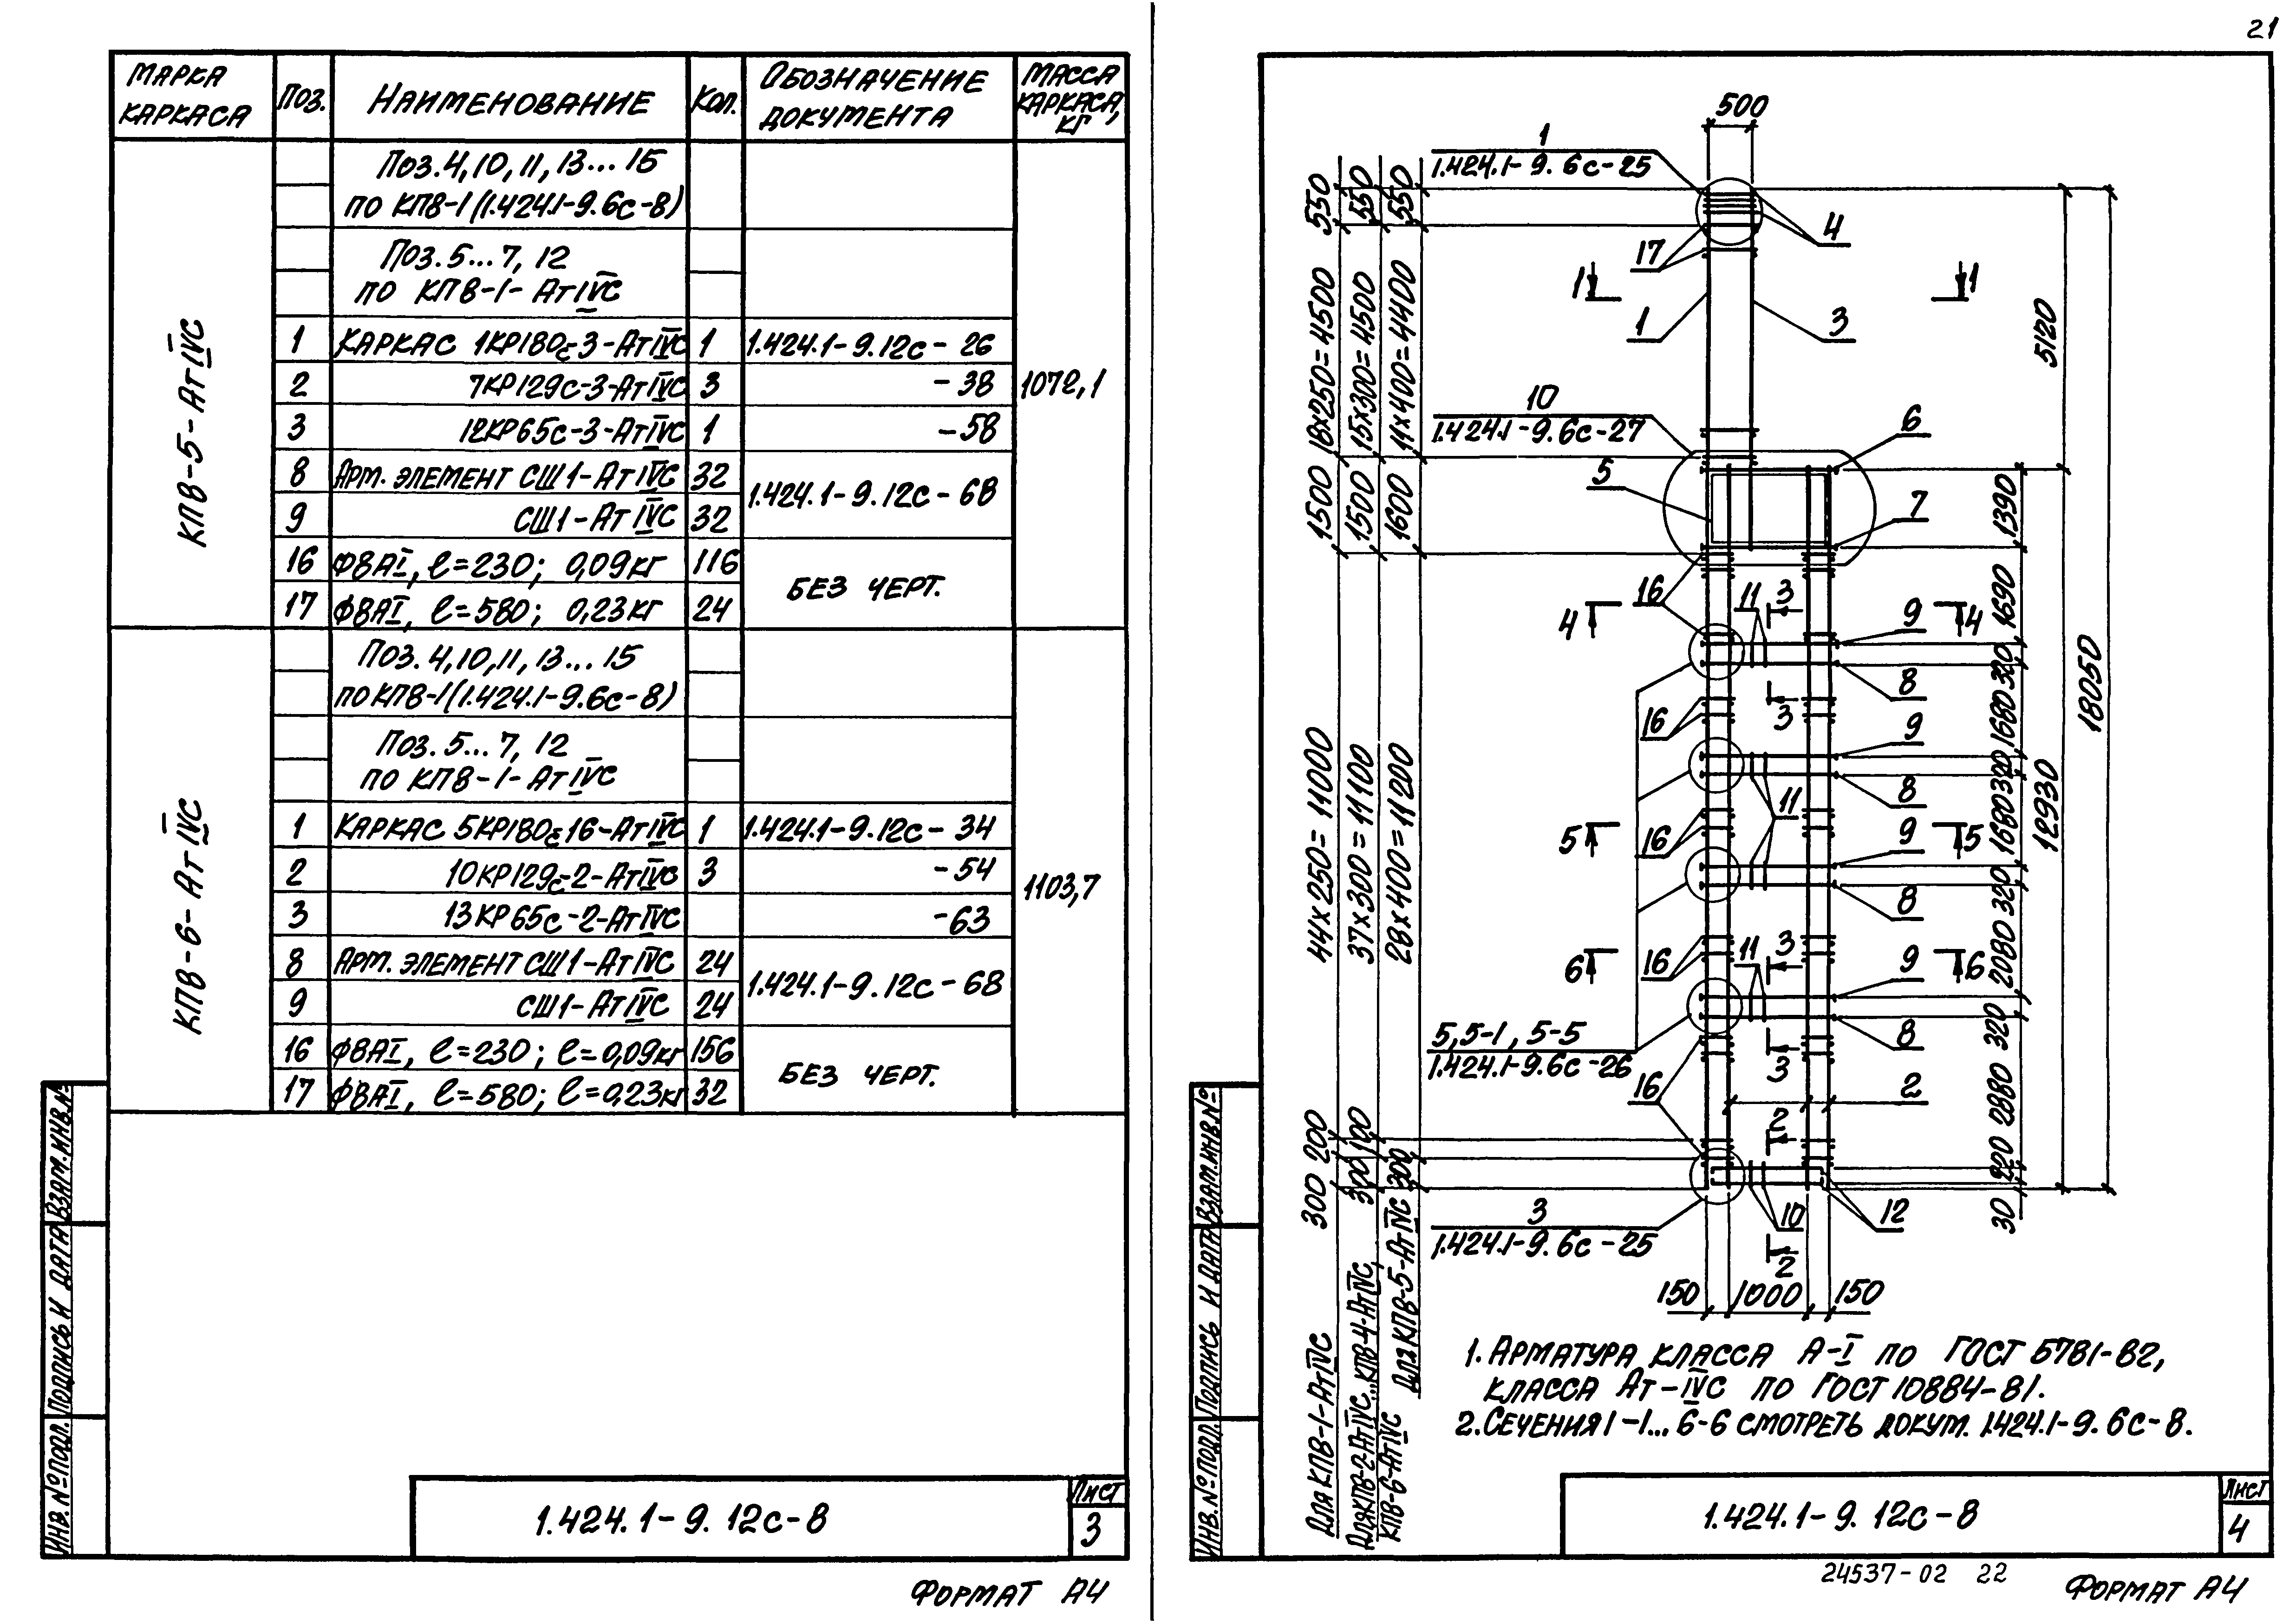 21
МАРКА КАРКАСА
Поз.
НАИМЕНОВАНИЕ
Кол.
ОБОЗНАЧЕНИЕ ДОКУМЕНТА
МАССА КАРКАСА, КГ
КП8-5-АтIVС
Поз. 4, 10, 11, 13... 15
по КП8-1 (1.424.1-9.6с-8)
Поз. 5... 7, 12
по КП8-1-АтIVС
1 КАРКАС 1КР180с-3-АтIVС 1 1.424.1-9.12с-26
2 7КР129с-3-АтIVС 3 -38
1072,1
3 12КР65с-3-АтIVС 1 -58
8 АРМ. ЭЛЕМЕНТ СШ1-АтIVС 32
1.424.1-9.12с-68
9 СШ1-АтIVС 32
16 Ф8АI, ℓ=230; 0,09кг 116
БЕЗ ЧЕРТ.
17 Ф8АI, ℓ=580; 0,23кг 24
КП8-6-АтIVС
Поз. 4, 10, 11, 13... 15
по КП8-1 (1.424.1-9.6с-8)
Поз. 5... 7, 12
по КП8-1-АтIVС
1 КАРКАС 5КР180с-16-АтIVС 1 1.424.1-9.12с-34
2 10КР129с-2-АтIVС 3 -54
1103,7
3 13КР65с-2-АтIVС -63
8 АРМ. ЭЛЕМЕНТ СШ1-АтIVС 24
1.424.1-9.12с-68
9 СШ1-АтIVС 24
16 Ф8АI, ℓ=230; ℓ=0,09кг 156
БЕЗ ЧЕРТ.
17 Ф8АI, ℓ=580; ℓ=0,23кг 32
ВЗАМ.ИНВ.№
ПОДПИСЬ И ДАТА
ИНВ.№ ПОДЛ.
1.424.1-9.12с-8
Лист
3
ФОРМАТ А4
500
1
1.424.1-9.6с-25
4
17
1 1
1 3
10
1.424.1-9.6с-27
6
5
7
16 11 3
4 4
9
8
3
16
9
11
8
16
5 5
9
8
16 11 3
6 6
9
8
5, 5-1, 5-5
1.424.1-9.6с-26
3
16
2
2
3
1.424.1-9.6с-25
10 12
2
150 1000 150
550 18х250=4500 1500 44х250=11000 200 300
550 15х300=4500 1500 37х300=11100 100 300
550 11х400=4400 1600 28х400=11200 300
ДЛЯ КП8-1-АтIVС
ДЛЯ КП8-2-АтIVС...КП8-4-АтIVС,
КП8-6-АтIVС
ДЛЯ КП8-5-АтIVС
1390 1690 320 1680 320 1680 320 2080 320 2880 220 30
5120 12930
18050
1. АРМАТУРА КЛАССА А-I ПО ГОСТ 5781-82,
КЛАССА Ат-IVС ПО ГОСТ 10884-81.
2. СЕЧЕНИЯ 1-1... 6-6 СМОТРЕТЬ ДОКУМ. 1.424.1-9.6с-8.
ВЗАМ.ИНВ.№
ПОДПИСЬ И ДАТА
ИНВ.№ ПОДЛ.
1.424.1-9.12с-8
Лист
4
24537-02 22
ФОРМАТ А4